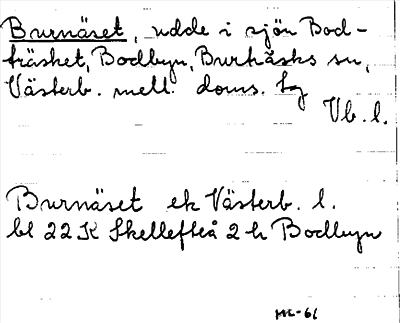 Burnäset, udde i sjön Bod-
träsket, Bodbyn, Burträsks sn,
Västerb. mell. doms. tg
Vb. l.
Burnäset ek Västerb. l.
bl 22 K Skellefteå 2 h Bodbyn
HL-61